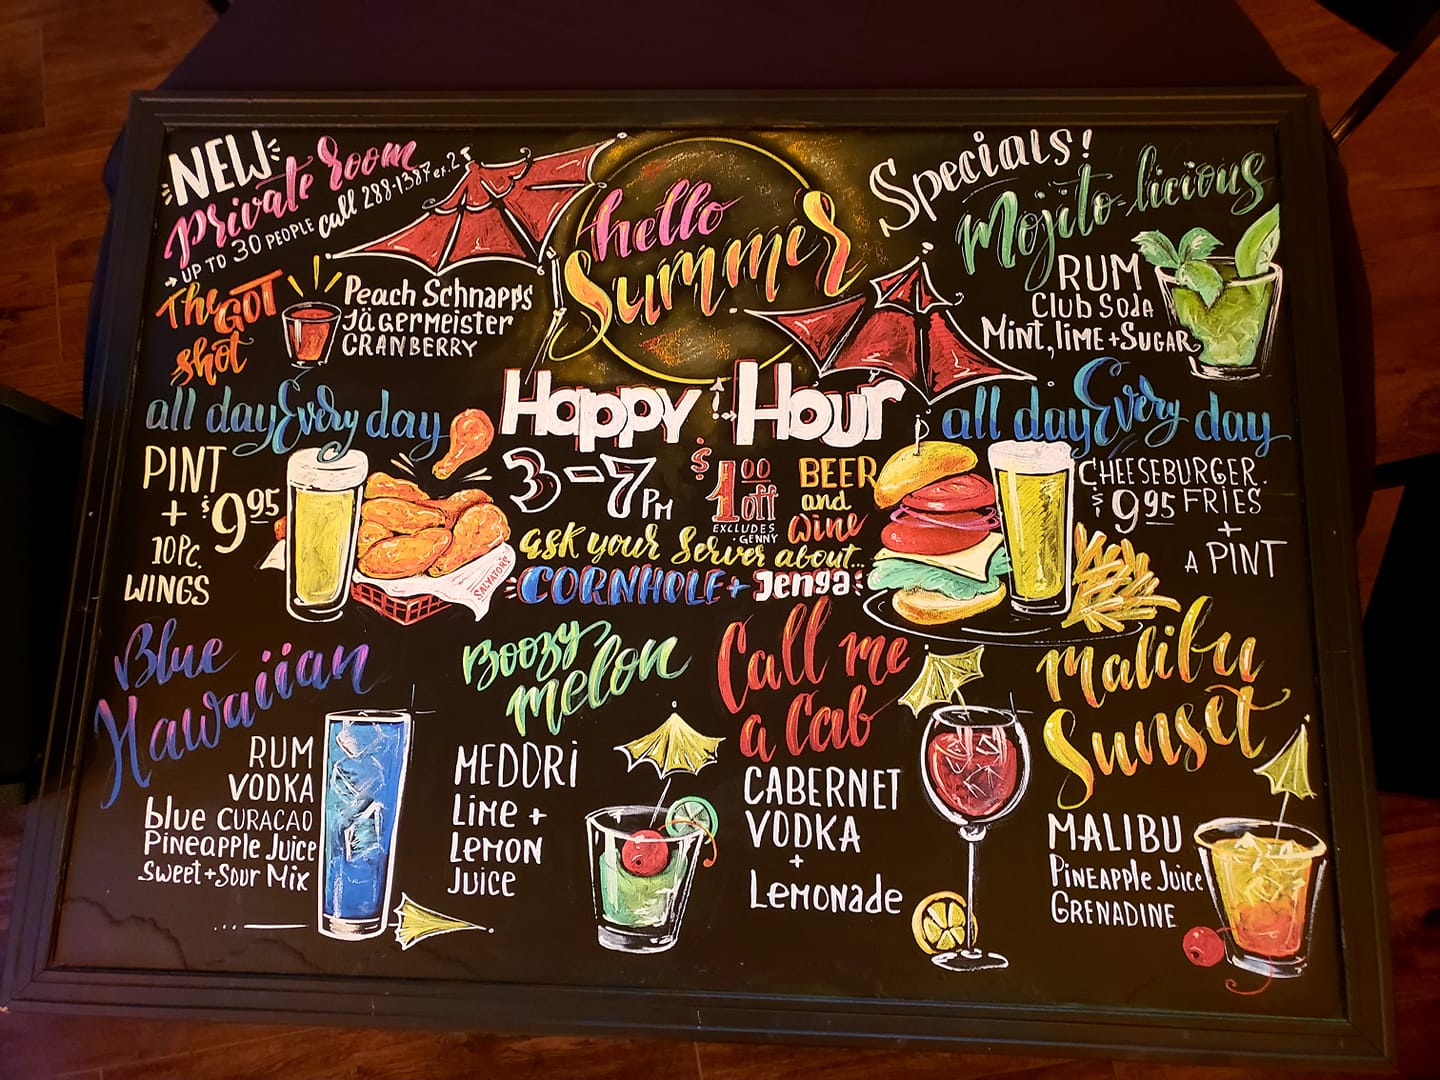 NEW
private room
UP TO 30 PEOPLE call 288-1387 ex.2
hello
Summer
Specials!
Mojito-licious
RUM
Club Soda
Mint, lime + Sugar
The GOT
shot
Peach Schnapps
Jägermeister
CRANBERRY
all day Every day
PINT
+ $9.95
10 Pc.
WINGS
SALVATORE'S
Happy Hour
3-7PM
$1.00 off
EXCLUDES
GENNY
BEER
and
Wine
ask your Server about...
CORNHOLE + Jenga
all day Every day
CHEESEBURGER.
$9.95 FRIES
+
A PINT
Blue
Hawaiian
RUM
VODKA
blue CURACAO
Pineapple Juice
Sweet + Sour Mix
Boozy
melon
MEDORI
Lime +
LEMON
Juice
Call me
a Cab
CABERNET
VODKA
+
Lemonade
Malibu
Sunset
MALIBU
Pineapple Juice
GRENADINE